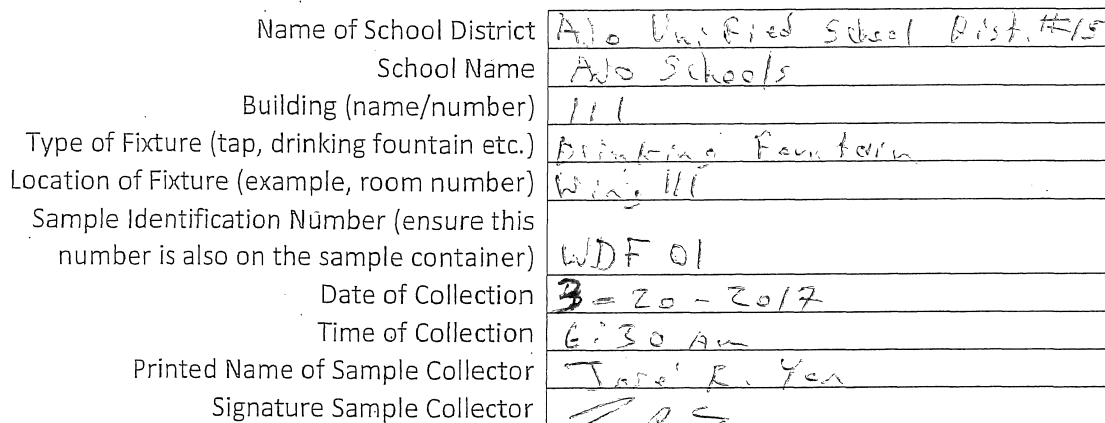 Name of School District Ajo Unified School Dist. #15
School Name AJo Schools
Building (name/number) 111
Type of Fixture (tap, drinking fountain etc.) Drinking Fountain
Location of Fixture (example, room number) Wing 111
Sample Identification Number (ensure this
number is also on the sample container) WDF 01
Date of Collection 3-20-2017
Time of Collection 6:30 Am
Printed Name of Sample Collector R.
Signature Sample Collector